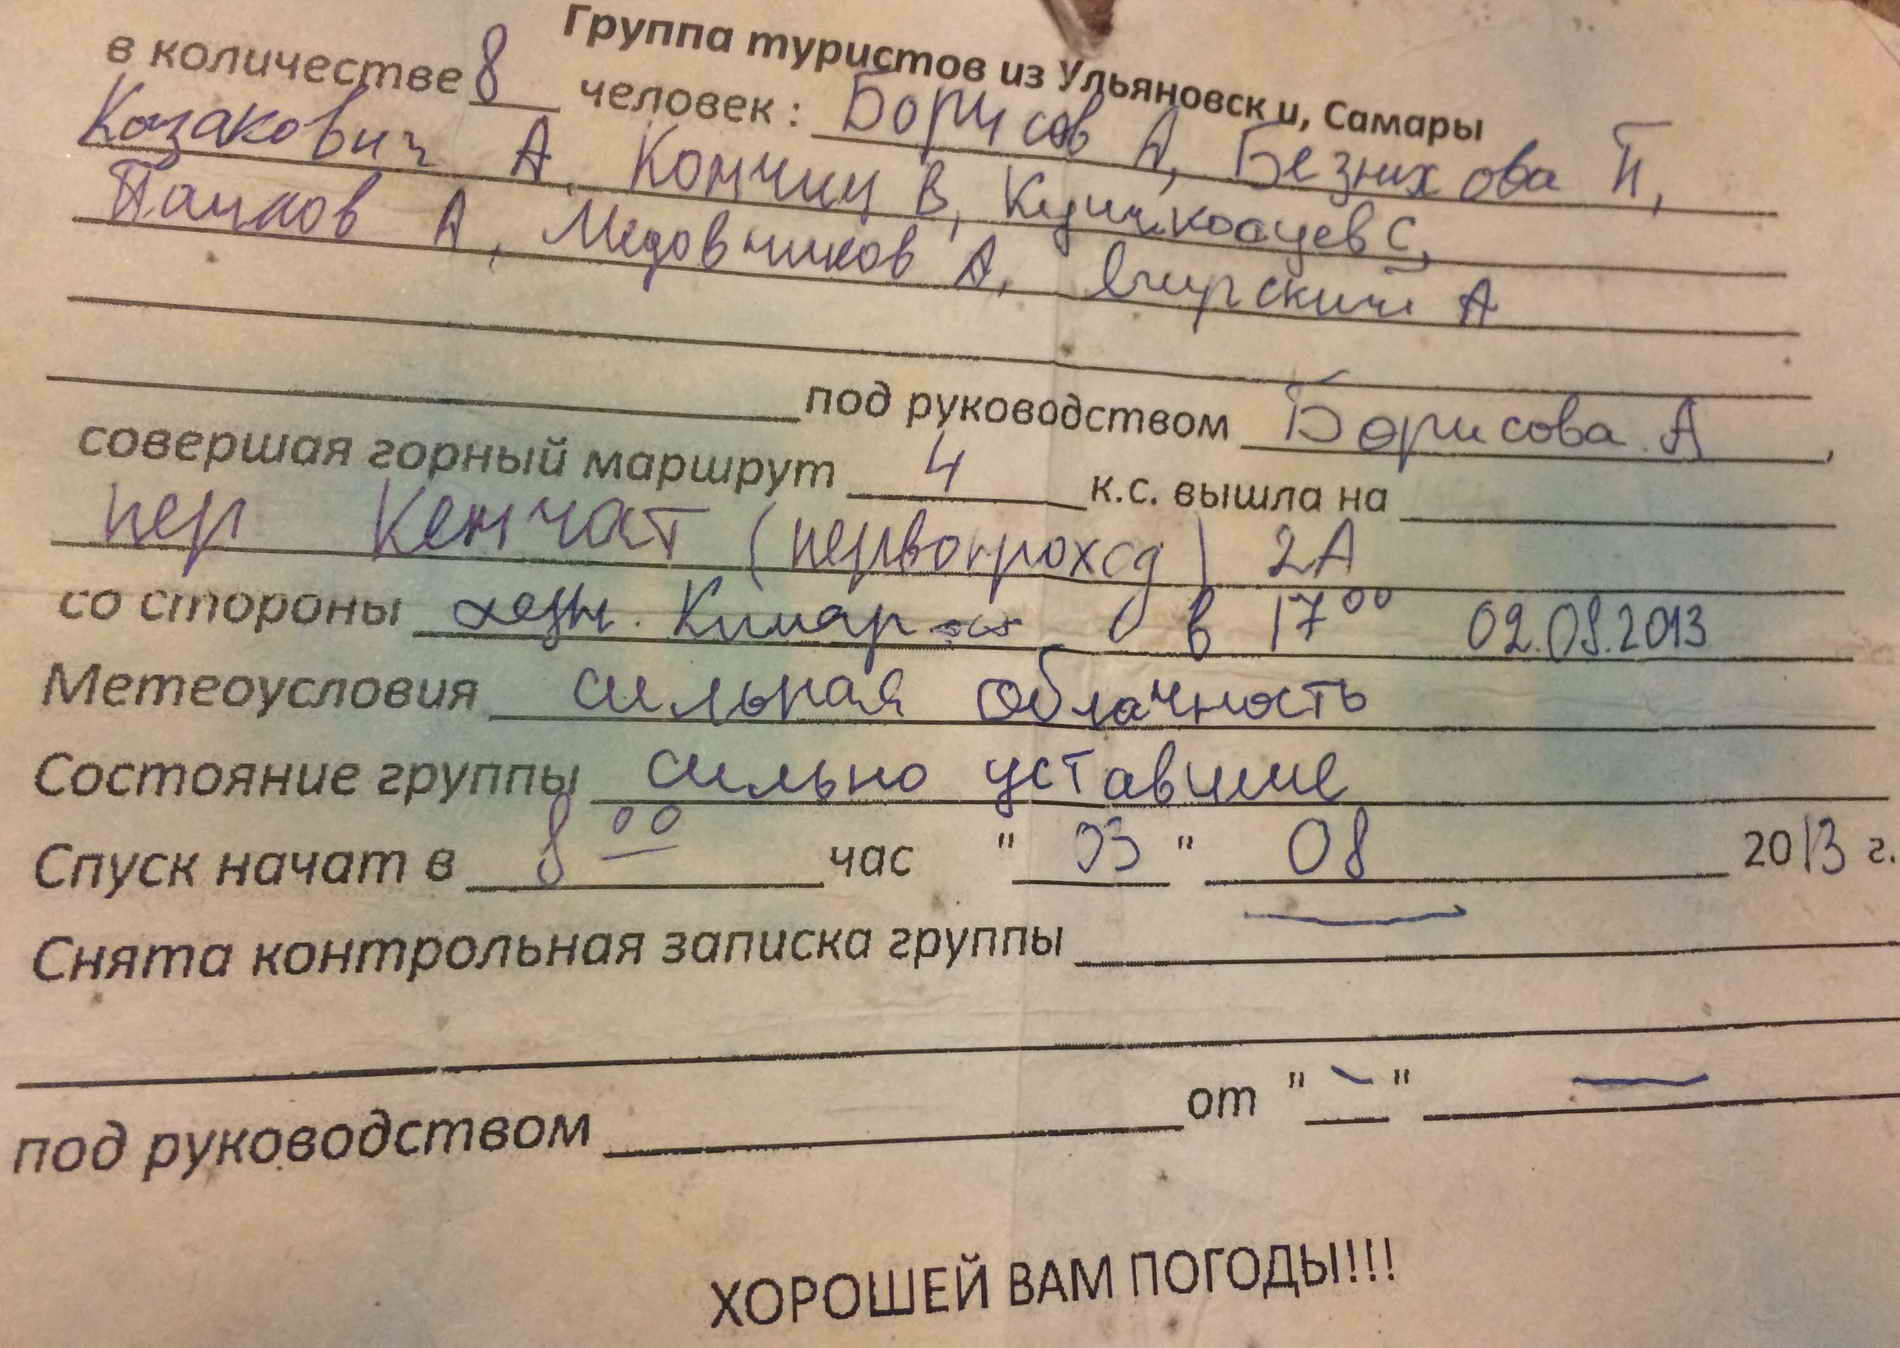 Группа туристов из Ульяновск и, Самары
в количестве 8 человек : Борисов А, Безнихова П,
Казакович А, Кончиц В, С,
Пачков А, Медовников А, А
под руководством Борисова А,
совершая горный маршрут 4 к.с. вышла на
пер Кенчат (первопроход) 2А
со стороны в 17⁰⁰ 02.08.2013
Метеоусловия сильная облачность
Состояние группы сильно уставшие
Спуск начат в 8⁰⁰ час "03" 08 2013 г.
Снята контрольная записка группы
под руководством от "–" –
ХОРОШЕЙ ВАМ ПОГОДЫ!!!